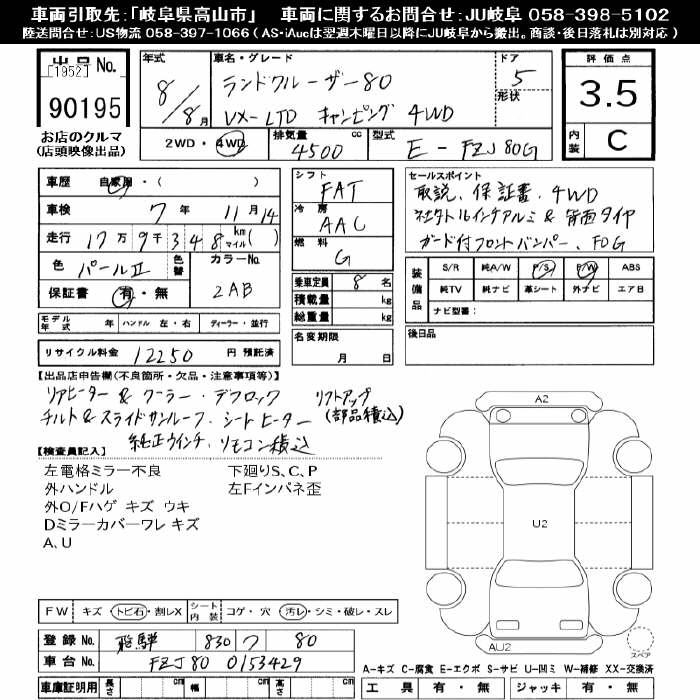 車両引取先:「岐阜県高山市」　車両に関するお問合せ:JU岐阜 058-398-5102
陸送問合せ:US物流 058-397-1066 ( AS・iAucは翌週木曜日以降にJU岐阜から搬出。商談・後日落札は別対応 )
出品No.
[1952]
90195
お店のクルマ
(店頭映像出品)
年式
8/8月
車名・グレード
ランドクルーザー80
VX-LTD キャンピング 4WD
ドア
5
形状
評価点
3.5
内装
C
2WD・4WD
排気量
4500 cc
型式
E-FZJ80G
車歴 自家用・( )
車検 7年 11月14
走行 17万9千348 km マイル( )
色 パールII 色替
カラーNo.
2AB
保証書 有・無
シフト
FAT
冷房
AAC
燃料
G
乗車定員 8 名
積載量 kg
総重量 kg
名変期限
月 日
セールスポイント
取説、保証書、4WD
社外16インチアルミ & 背面タイヤ
ガード付フロントバンパー、FOG
装備品
S/R 純A/W P/S P/W ABS
純TV 純ナビ 革シート 外ナビ エア日
ナビ型番:
後日品
モデル年式 年 ハンドル 左・右 ディーラー・並行
リサイクル料金 12250 円 預託済
【出品店申告欄(不良箇所・欠品・注意事項等)】
リアヒーター & クーラー、デフロック リフトアップ
チルト&スライドサンルーフ、シートヒーター (部品積込)
純正ウインチ、リモコン積込
【検査員記入】
左電格ミラー不良
外ハンドル
外O/Fハゲ キズ ウキ
Dミラーカバーワレ キズ
A、U
下廻りS、C、P
左Fインパネ歪
A2
U2
AU2
スペア
FW キズ・トビ石・割レX
シート内装 コゲ・穴 汚レ・シミ・破レ・スレ
登録No. 飛騨 830 7 80
車台No. FZJ80 0153429
車庫証明用 長さ cm 幅 cm 高さ cm
A-キズ C-腐食 E-エクボ S-サビ U-凹ミ W-補修 XX-交換済
工具 有・無 ジャッキ 有・無